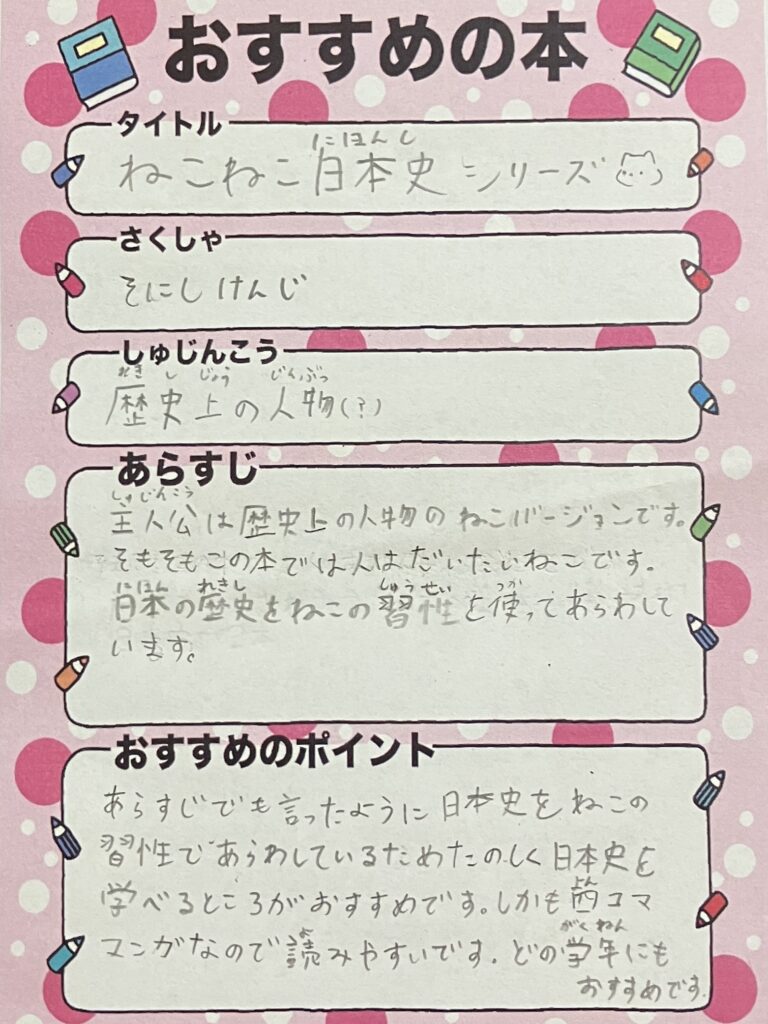 おすすめの本
タイトル
にほんし
ねこねこ日本史シリーズ
さくしゃ
そにしけんじ
しゅじんこう
れきしじょう じんぶつ
歴史上の人物(?)
あらすじ
しゅじんこう
主人公は歴史上の人物のねこバージョンです。
そもそもこの本では人はだいたいねこです。
にほん れきし しゅうせい つか
日本の歴史をねこの習性を使ってあらわして
います。
おすすめのポイント
あらすじでも言ったように日本史をねこの
習性であらわしているためたのしく日本史を
学べるところがおすすめです。しかも
よん
四コマ
よ がくねん
マンガなので読みやすいです。どの学年にも
おすすめです。